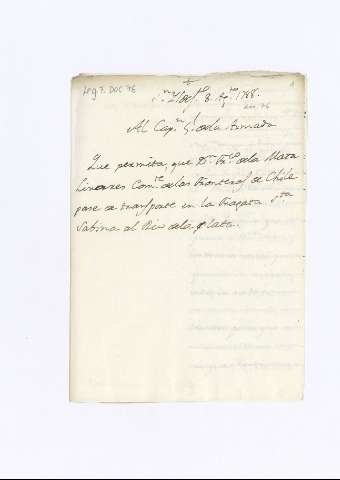 Leg 7. DOC 76
1
+
8. Ag.to 1788.
DOC 76
Al Cap.n G.l de la Armada
Que permita que D.n Fr.co de la Mata
Linares Com.te de las Fronteras de Chile
pase de transporte en la Fragata S.ta
Sabina al Rio de la plata.